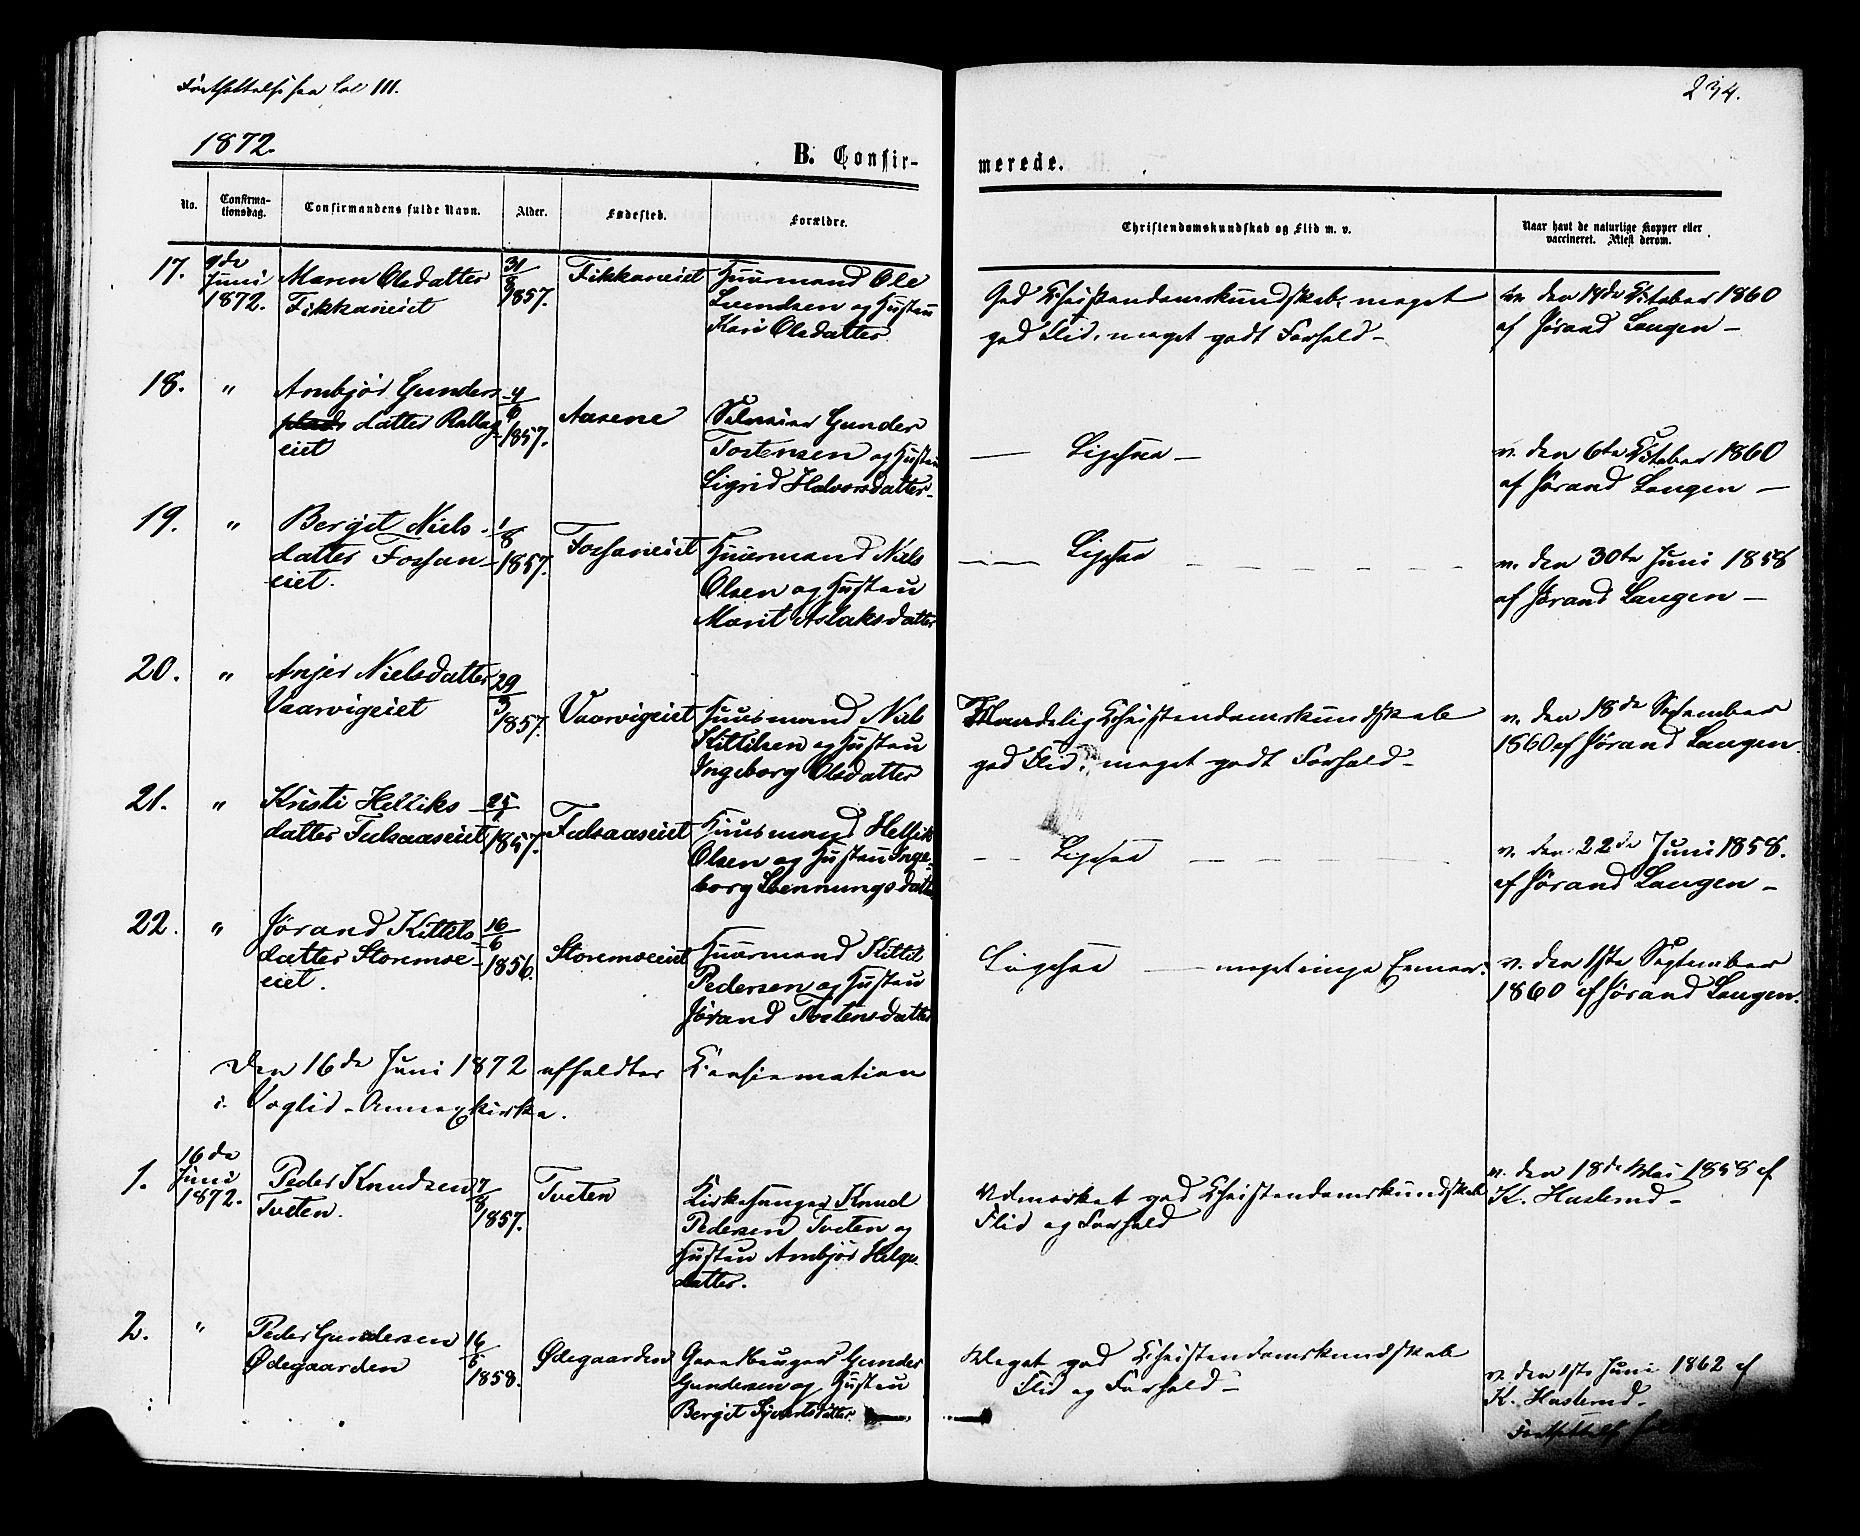 Fortsættelse fra Col III.
234.
1872.
B. Confir-
merede.
No.
Confirma-
tionsdag.
Confirmandens fulde Navn.
Alder.
Fødested.
Forældre.
Christendomskundskab og Flid m. v.
Naar havt de naturlige Kopper eller
vaccineret. Attest derom.
17.
9de
Juni
1872.
Maren Olsdatter
Fikkaneiet
31
8
1857.
Fikkaneiet
Huusmand Ole
Svendsen og Hustru
Kari Olsdatter
God Christendomskundskab, meget
god Flid, meget godt Forhold -
v. den 18de October 1860
af Jørand Langen -
18.
"
Anbjør Gunders
plads datter Rallag
eiet
4
6
1857.
Aasene
Gunder
Tostensen og Hustru
Sigrid Halvorsdatter -
— Ligesaa -
v. den 6te October 1860
af Jørand Langen —
19.
"
Bergit Niels
datter Forsan-
eiet.
1
8
1857.
Forsaneiet
Huusmand Niels
Olsen og Hustru
Marit Aslaksdatter
Ligesaa
v. den 30te Juni 1858
af Jørand Langen —
20.
"
Anjer Nielsdatter
Vaarvigeiet
29
9
1857.
Vaarvigeiet
Huusmand Niels
Kittilsen og Hustru
Ingeborg Olsdatter
Mandelig Christendomskundskab
god Flid, meget godt Forhold -
v. den 18de September
1860 af Jørand Langen.
21.
"
Kristi Helliks
datter Fulsaaseiet
25
1
1857.
Fulsaaseiet
Huusmand Hellik
Olsen og Hustru Inge-
borg Svennungsdatter
Ligesaa
v. den 22de Juni 1858.
af Jørand Langen -
22.
"
Jørand Kittils
datter Storemoe-
eiet.
16
6
1856.
Storemoeeiet
Huusmand Kittil
Pedersen og Hustru
Jørand Tostensdatter
Ligesaa — meget ringe Evner.
v. den 1ste September
1860 af Jørand Langen.
Den 16de Juni 1872 afholdtes Confirmation
i Veglid - Annexkirke.
1.
16de
Juni
1872.
Peder Knudsen
Tveten.
7
8
1857.
Tveten
Kirkesanger Knud
Pedersen Tveten og
Hustru Anbjør Helge-
datter.
Udmærket god Christendomskundskab
Flid og Forhold
v. den 18de Mai 1858 af
K. Haslerud -
2.
"
Peder Gundersen
Ødegaarden
16
6
1858.
Ødegaarden
Gaardbruger Gunder
Gundersen og Hustru
Bergit Sjvertsdatter
Meget god Christendomskundskab
Flid og Forhold -
v. den 1ste Juni 1862 af
K. Haslerud -
Fortsættelse